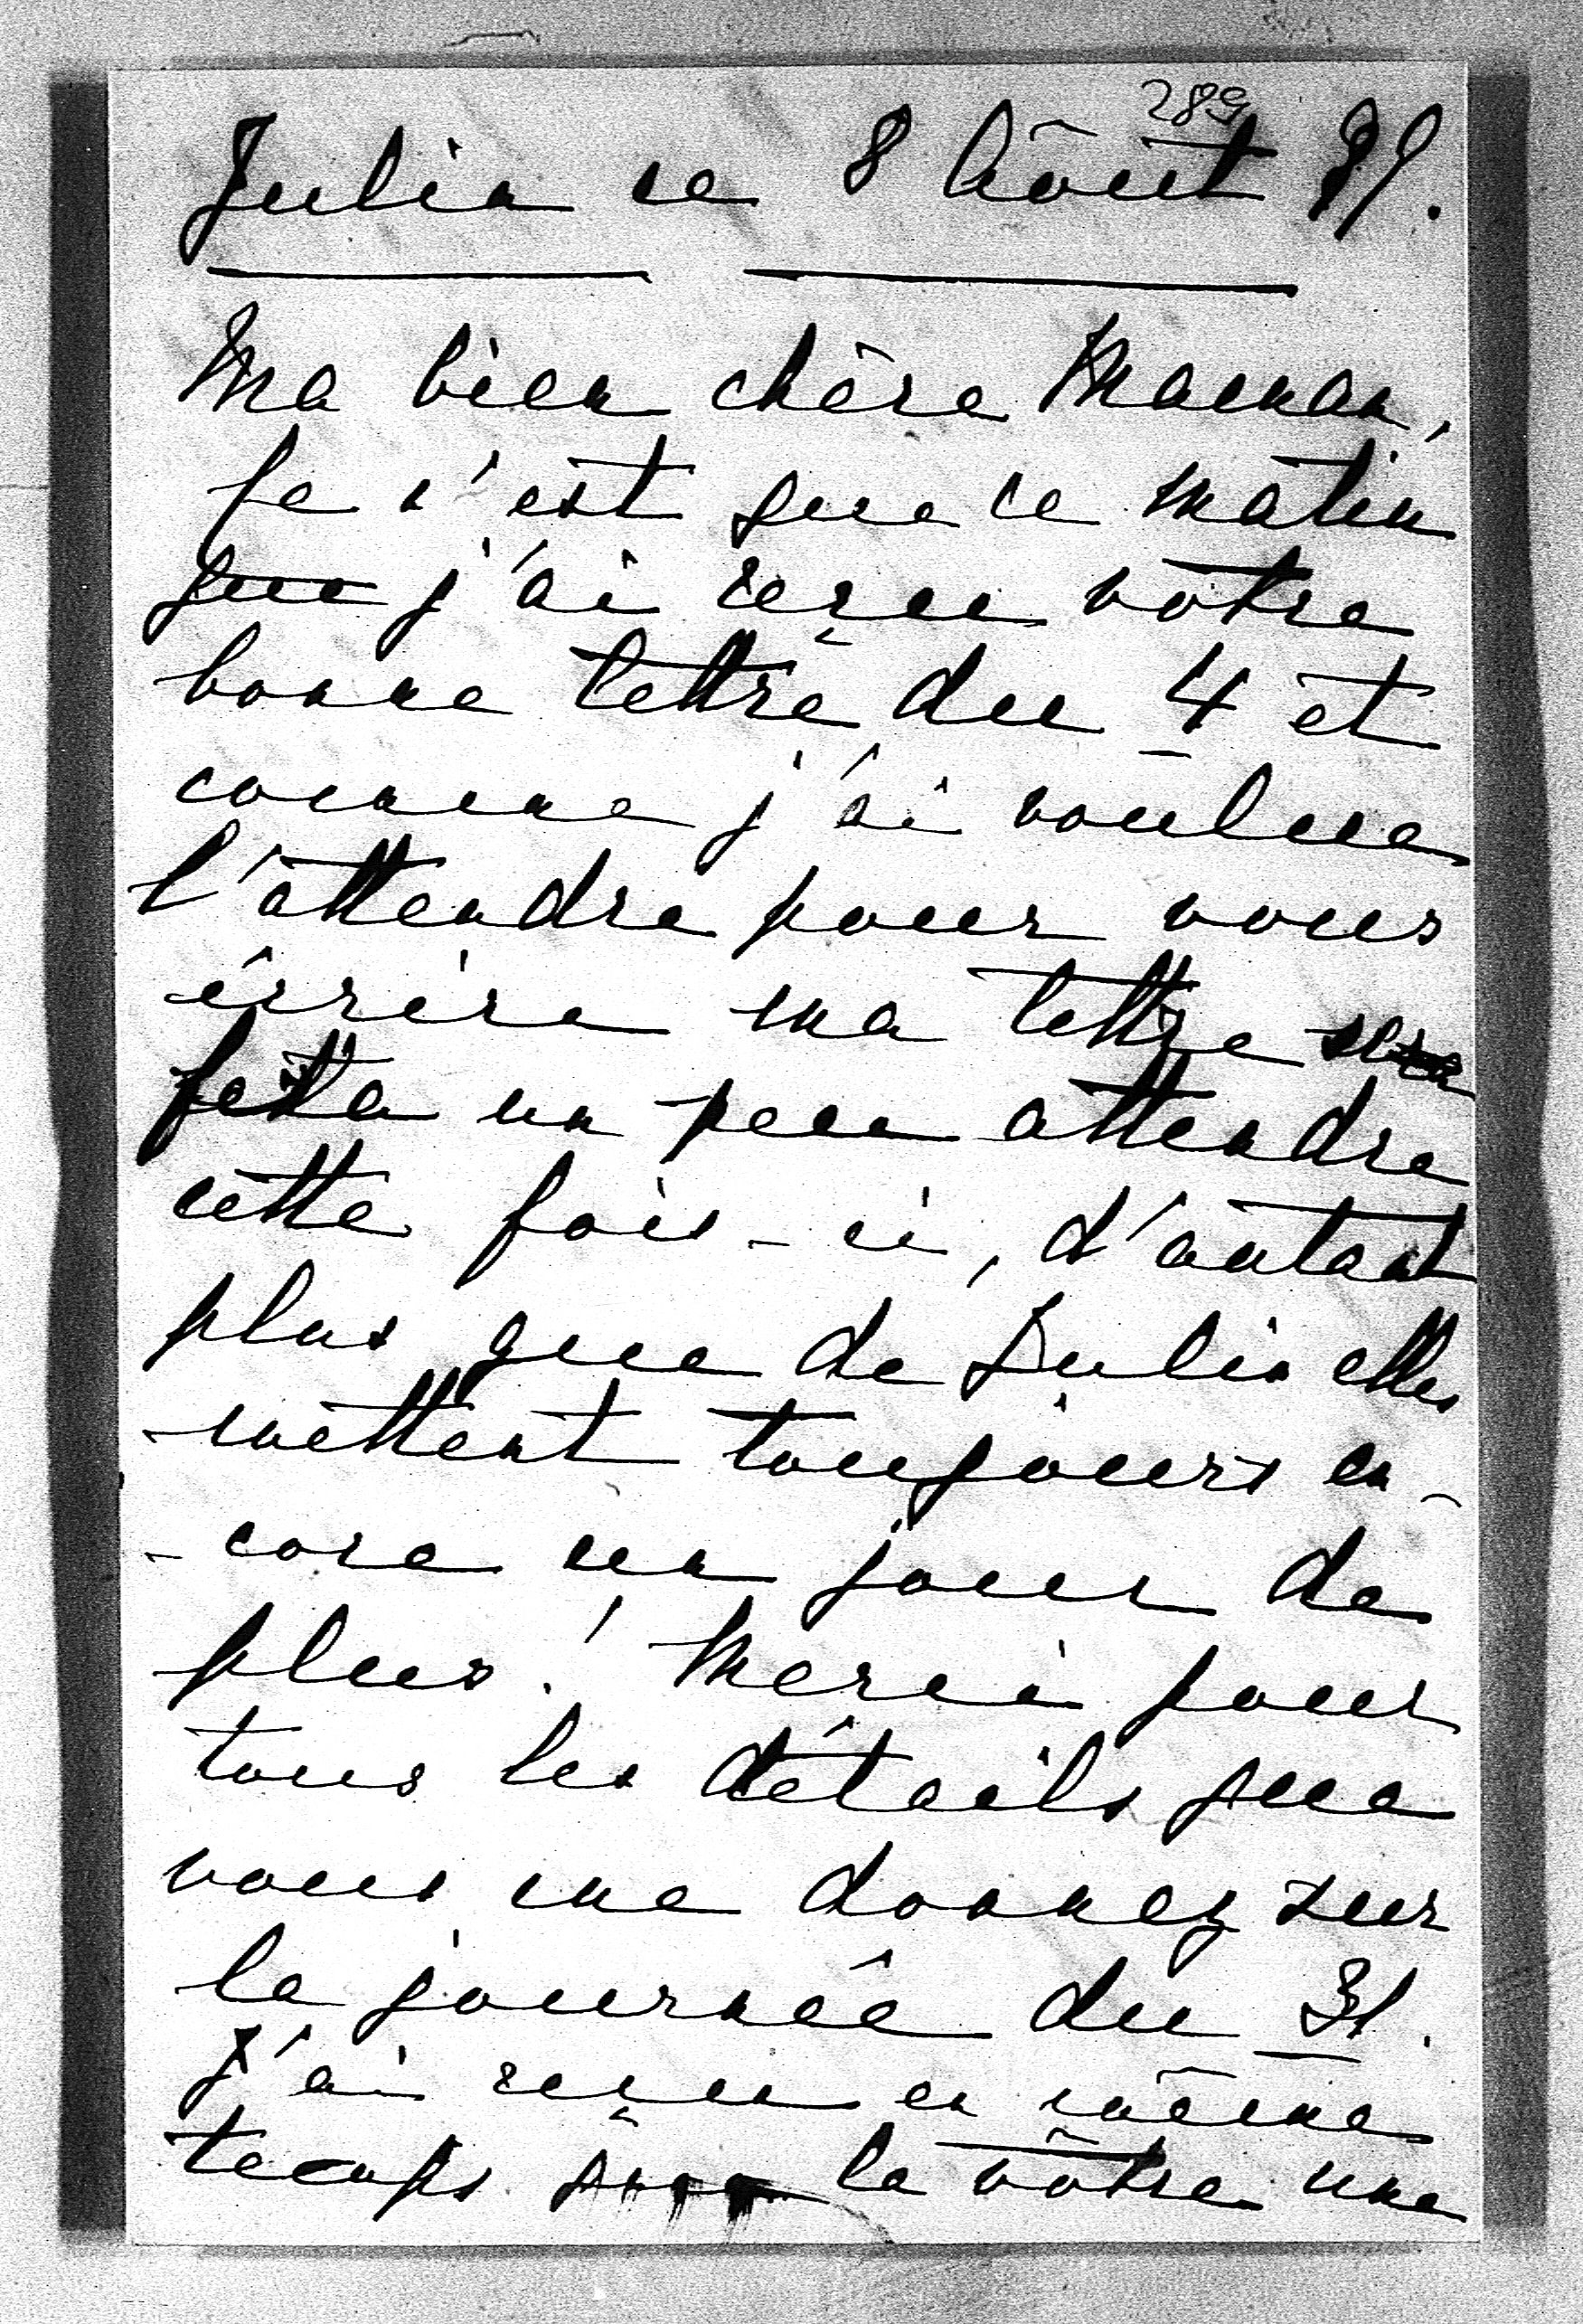 289
Julin ce 8 Août 91.
Ma bien chère Maman,
Ce n'est que ce matin
que j'ai reçu votre
bonne lettre du 4 et
comme j'ai voulue
l'attendre pour vous
écrire ma lettre sera
fera un peu attendre
cette fois-ci, d'autant
plus que de Julin elles
mettent toujours en-
-core un jour de
plus! Merci pour
tous les détails que
vous me donnez sur
la journée du 31.
J'ai reçu en même
temps que la vôtre une